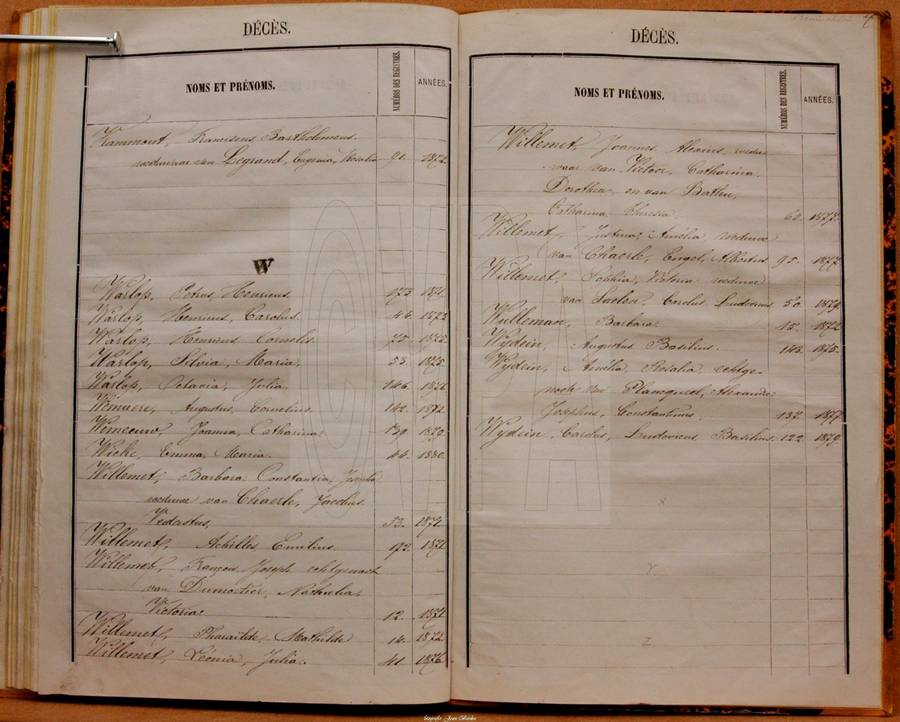 DÉCÈS.
NOMS ET PRÉNOMS.
NUMÉROS DES REGISTRES.
ANNÉES.
Franciscus Bartholomeus
weduwnaar van Legrand, Eugenia, Rosalia 91. 1872
W
Warlop, Petrus, Henricus. 173. 1871.
Warlop, Henricus, Carolus. 46. 1872
Warlop, Henricus Cornelis. 1875
Warlop, Silvia, Maria. 53. 1875.
Warlop, Octavia, Julia. 146. 1876
Augustus, Cornelius. 142. 1872.
Joanna, Catharina. 139. 1879.
Emma, Maria. 44. 1880.
Willemet, Barbara Constantia,
weduwe van Chaerle, Jacobus
Vedastus. 33. 1871.
Willemet, Achilles, Emilius. 1871.
Willemet, François, Joseph echtgenoot
van Dumortier, Nathalia
Victoria. 12. 1871.
Willemet, Pharaïlde, Mathilde 14. 1872.
Willemet, Léonia, Julia. 41. 1876.
DÉCÈS.
NOMS ET PRÉNOMS.
NUMÉROS DES REGISTRES.
ANNÉES.
Willemet, Joannes, Alexius, wedu-
naar van Victoor, Catharina
Dorothea, en van
Catharina Theresia. 62. 1877.
Willemet, Justina, Amelia weduwe
van Chaerle, Engel, Albertus. 95. 1877
Willemet, Sophia, Victoria weduwe
van Carolus Ludovicus 50. 1879.
Wulleman, Barbara. 15. 1872.
Wydein, Augustus Basilius. 143. 1875.
Wydein, Amélia, Rosalia echtge-
noote van Plancqueel, Alexander
Josephus, Constantinus. 132. 1877
Wydein, Carolus, Ludovicus Basilius. 122. 1879
X
Y.
Z